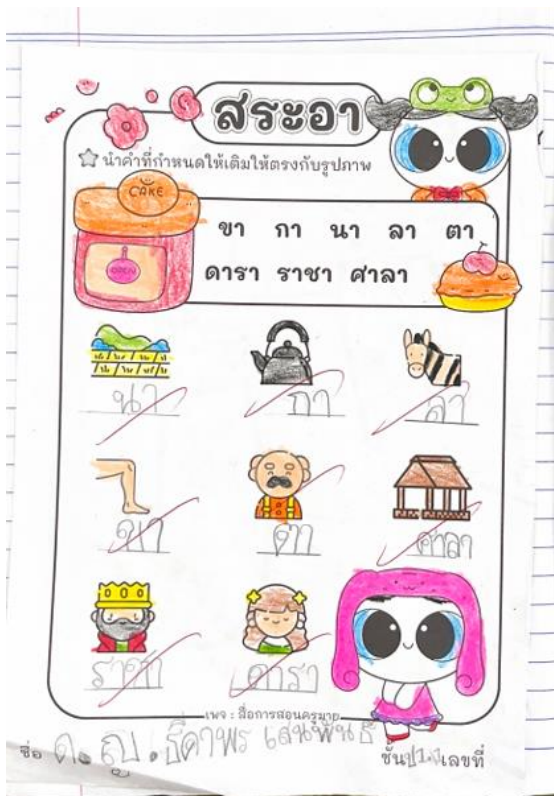 สระอา
นำคำที่กำหนดให้เติมให้ตรงกับรูปภาพ
CAKE
OPEN
ขา กา นา ลา ตา
ดารา ราชา ศาลา
นา กา ลา
ขา ตา ศาลา
ราชา ดารา
เพจ : สื่อการสอนครูมาย
ชื่อ ด.ญ. ธีดาพร เสนพันธ์ ชั้นป1.1เลขที่